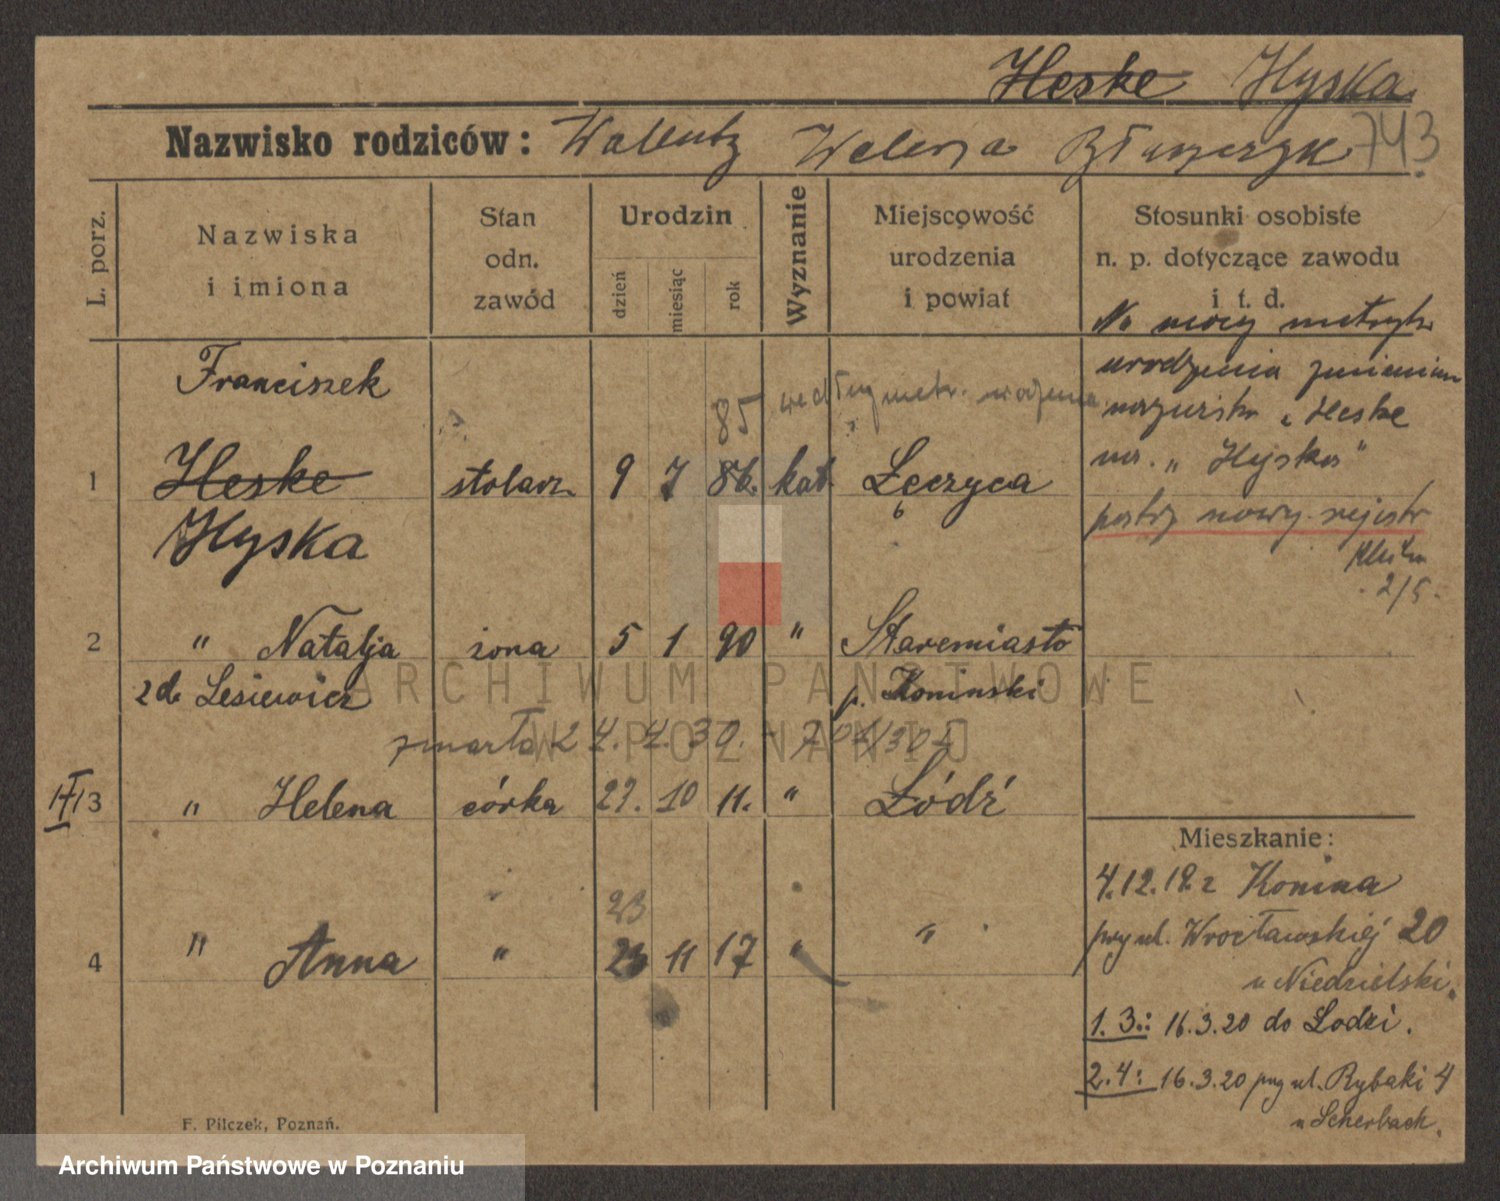 Heske Hyska
Nazwisko rodziców: Walenty Walerja 743
L. porz.
Nazwiska
i imiona
Stan
odn.
zawód
Urodzin
dzień
miesiąc
rok
Wyznanie
Miejscowość
urodzenia
i powiat
Stosunki osobiste
n. p. dotyczące zawodu
i t. d.
Na mocy metryki
urodzenia
nazwisko „Heske
na „Hyska"
patrz nowy rejestr
2/5.
Franciszek
85 według metr. urodzenia
1 Heske stolarz 9 7 86. kat. Łęczyca
Hyska
2 " Natalja żona 5 1 90 " Staremiasto
zd. Lesiewicz p. Koninski
zmarła 4. 4. 30.
3 " Helena córka 27. 10 11. " Łódź
23
4 " Anna " 23 11 17 " "
Mieszkanie:
4.12.19. z Konina
przy ul. Wrocławskiéj 20
u Niedzielski.
1. 3.: 16.3.20 do Łodzi.
2. 4: 16.3.20 przy ul. Rybaki 4
u Scherbach.
F. Pilczek, Poznań.
ARCHIWUM PAŃSTWOWE
W POZNANIU
Archiwum Państwowe w Poznaniu